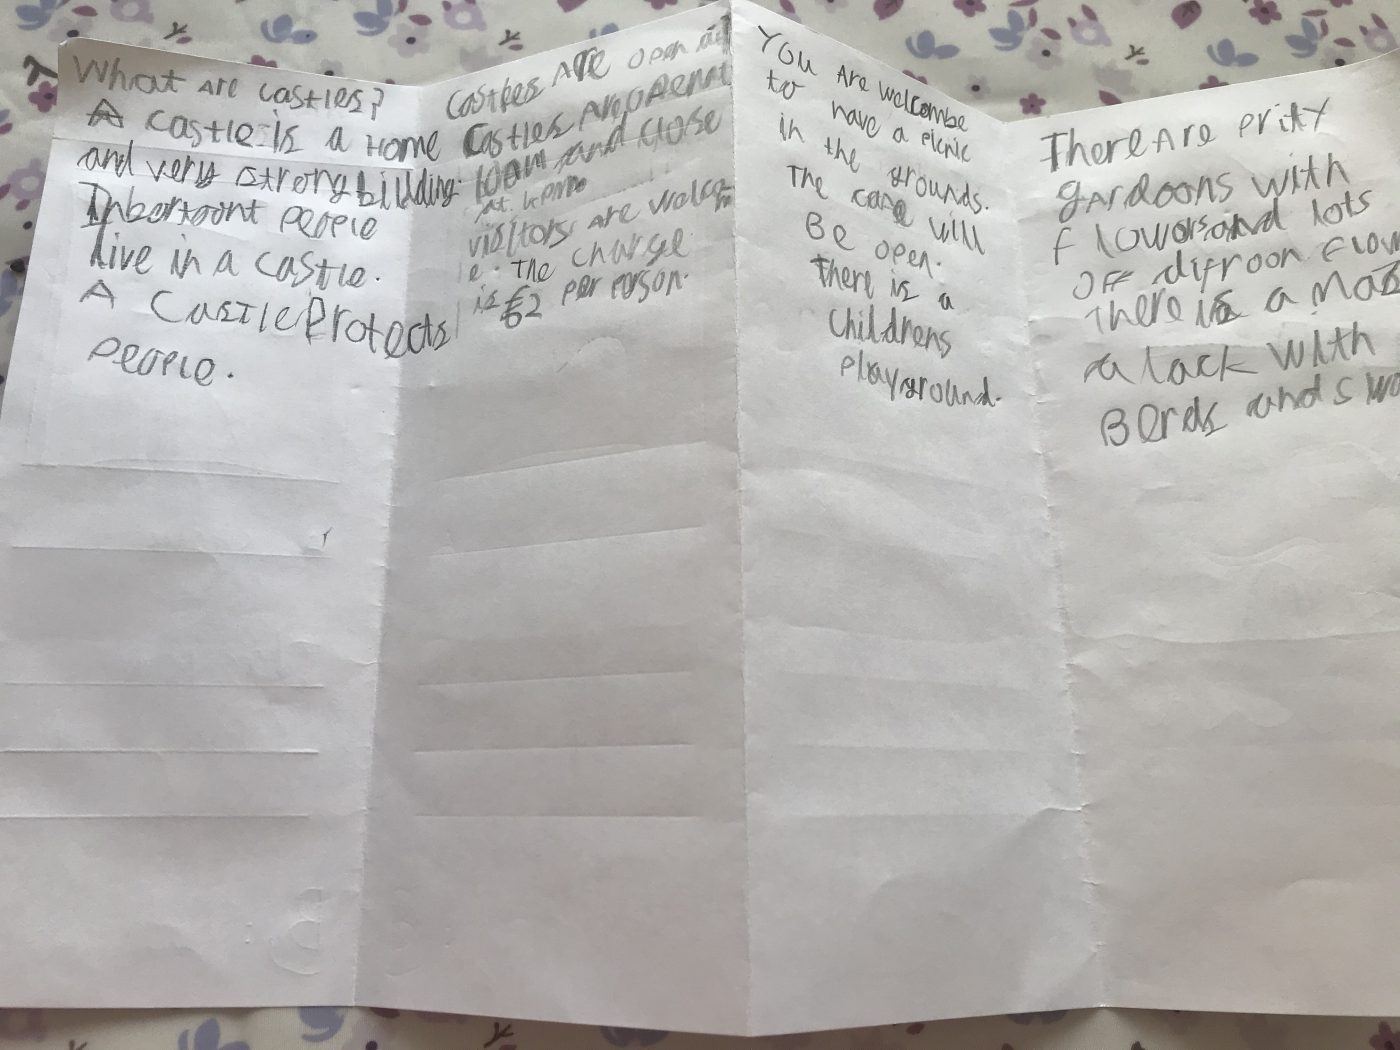 What are castles?
A castle is a Home
and very strong biulding.
Inbortoont people
live in a castle.
A Castle Protects
people.
Castkes are open at
Castles are open at
10am and close
at 4pm
visitors are welco
e. The charge
is £2 per erson.
You are welcombe
to have a picnic
in the grounds.
The cafe will
Be open.
There is a
Childrens
playground.
There are prity
gardoons with
flowors and lots
off difroon flow
There is a moa
a lack with
Berds and swa